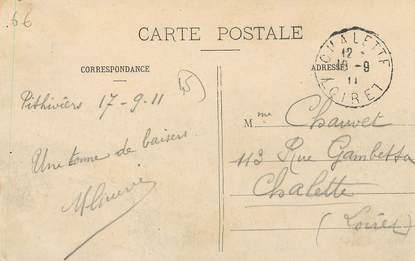 66
CARTE POSTALE
CORRESPONDANCE
ADRESSE
CHALETTE
12
18-9
11
LOIRET
45
Pithiviers 17-9-11
Une tonne de baisers
Mme Chauvet
113 Rue Gambetta
Chalette
(Loiret)